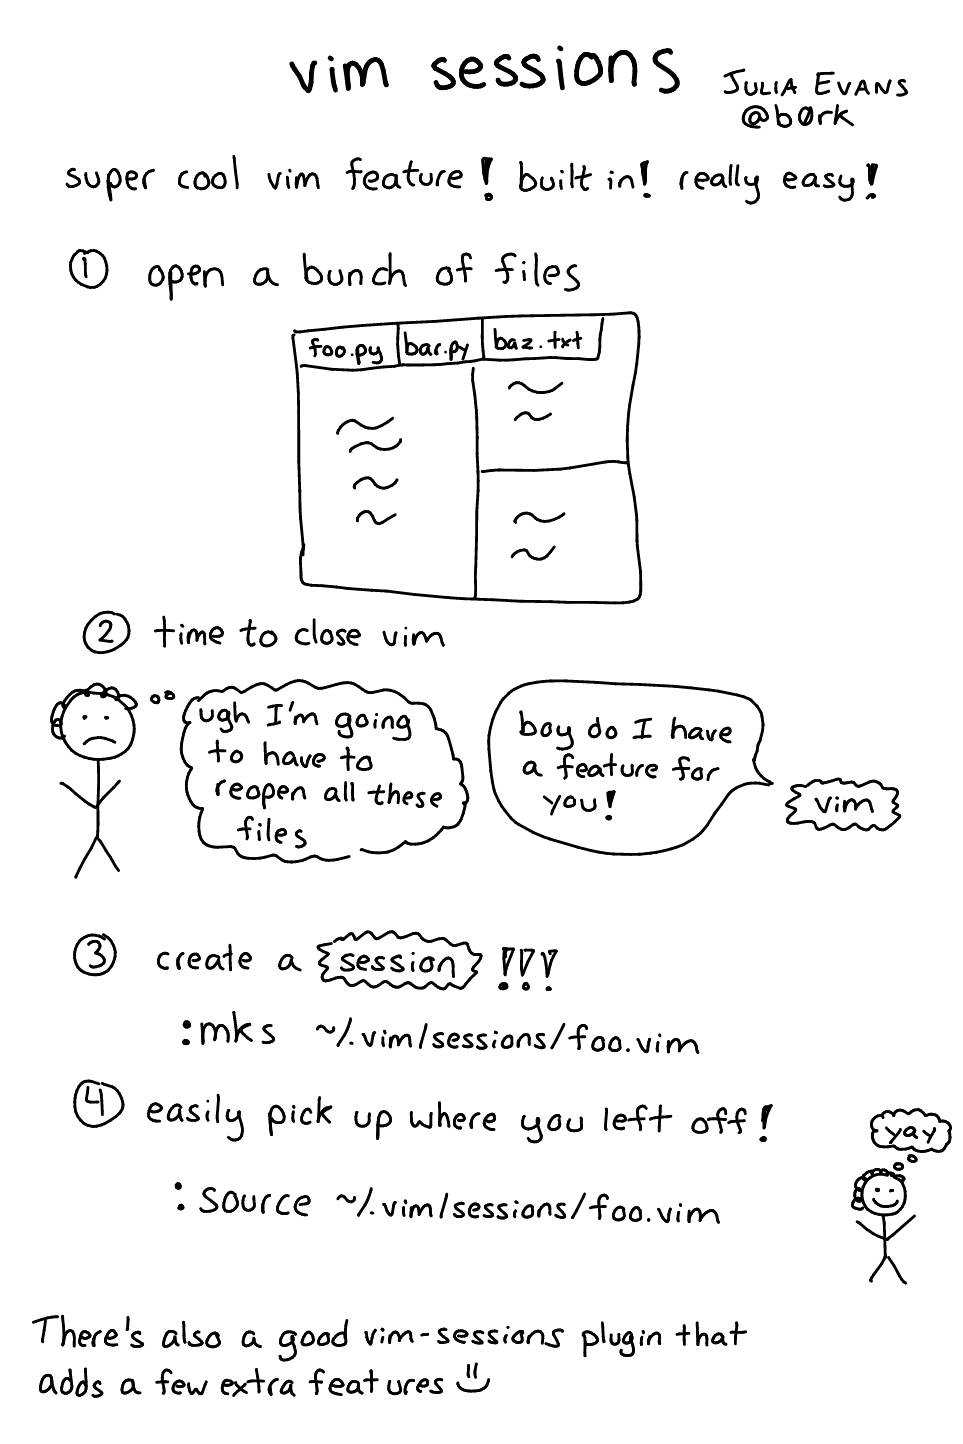 vim sessions
JULIA EVANS
@b0rk
super cool vim feature! built in! really easy!
① open a bunch of files
foo.py bar.py baz.txt
② time to close vim
ugh I'm going
to have to
reopen all these
files
boy do I have
a feature for
you!
vim
③ create a session !!!
:mks ~/.vim/sessions/foo.vim
④ easily pick up where you left off!
yay
:source ~/.vim/sessions/foo.vim
There's also a good vim-sessions plugin that
adds a few extra features